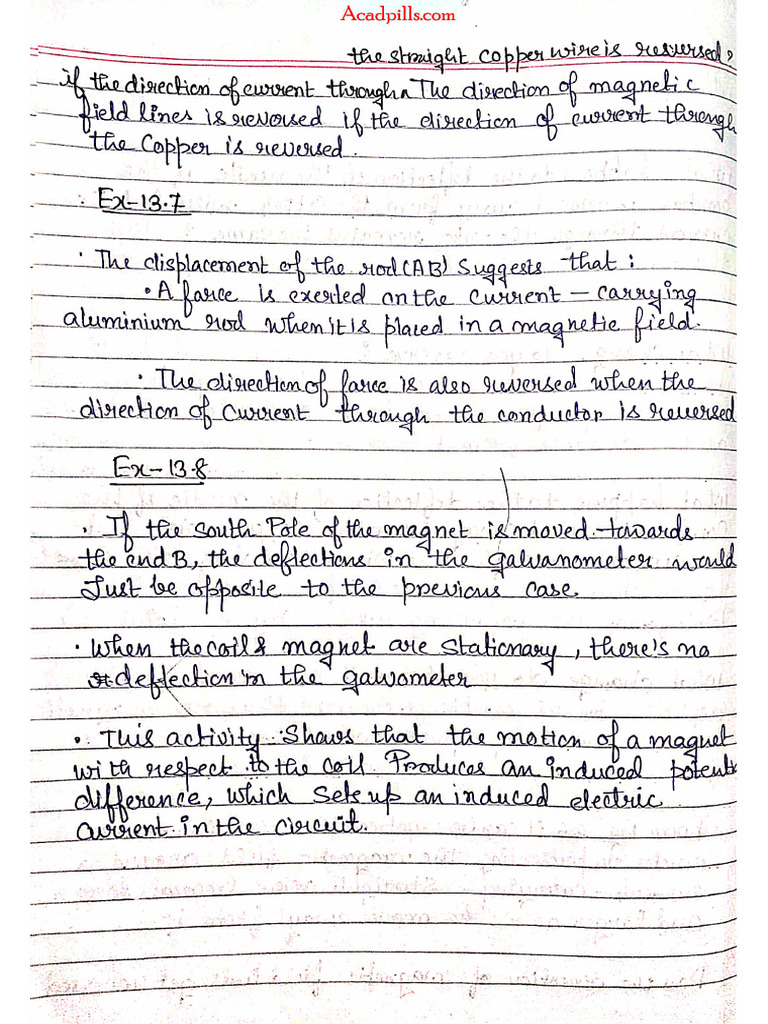 Acadpills.com
the straight copper wire is reversed,
if the direction of current through The direction of magnetic
field lines is reversed if the direction of current through
the Copper is reversed.
Ex-13.7
· The displacement of the rod (AB) Suggests that :
· A farce is exerted on the current - carrying
aluminium rod when it is placed in a magnetic field.
· The direction of farce is also reversed when the
direction of Current through the conductor is reversed
Ex-13.8
· If the south Pole of the magnet is moved towards
the end B, the deflections in the galvanometer would
Just be opposite to the previous case.
· When the coil & magnet are stationary, there's no
deflection in the galvometer
· This activity Shows that the motion of a magnet
with respect to the coil Produces an induced potenti
difference, which sets up an induced electric
current in the circuit.